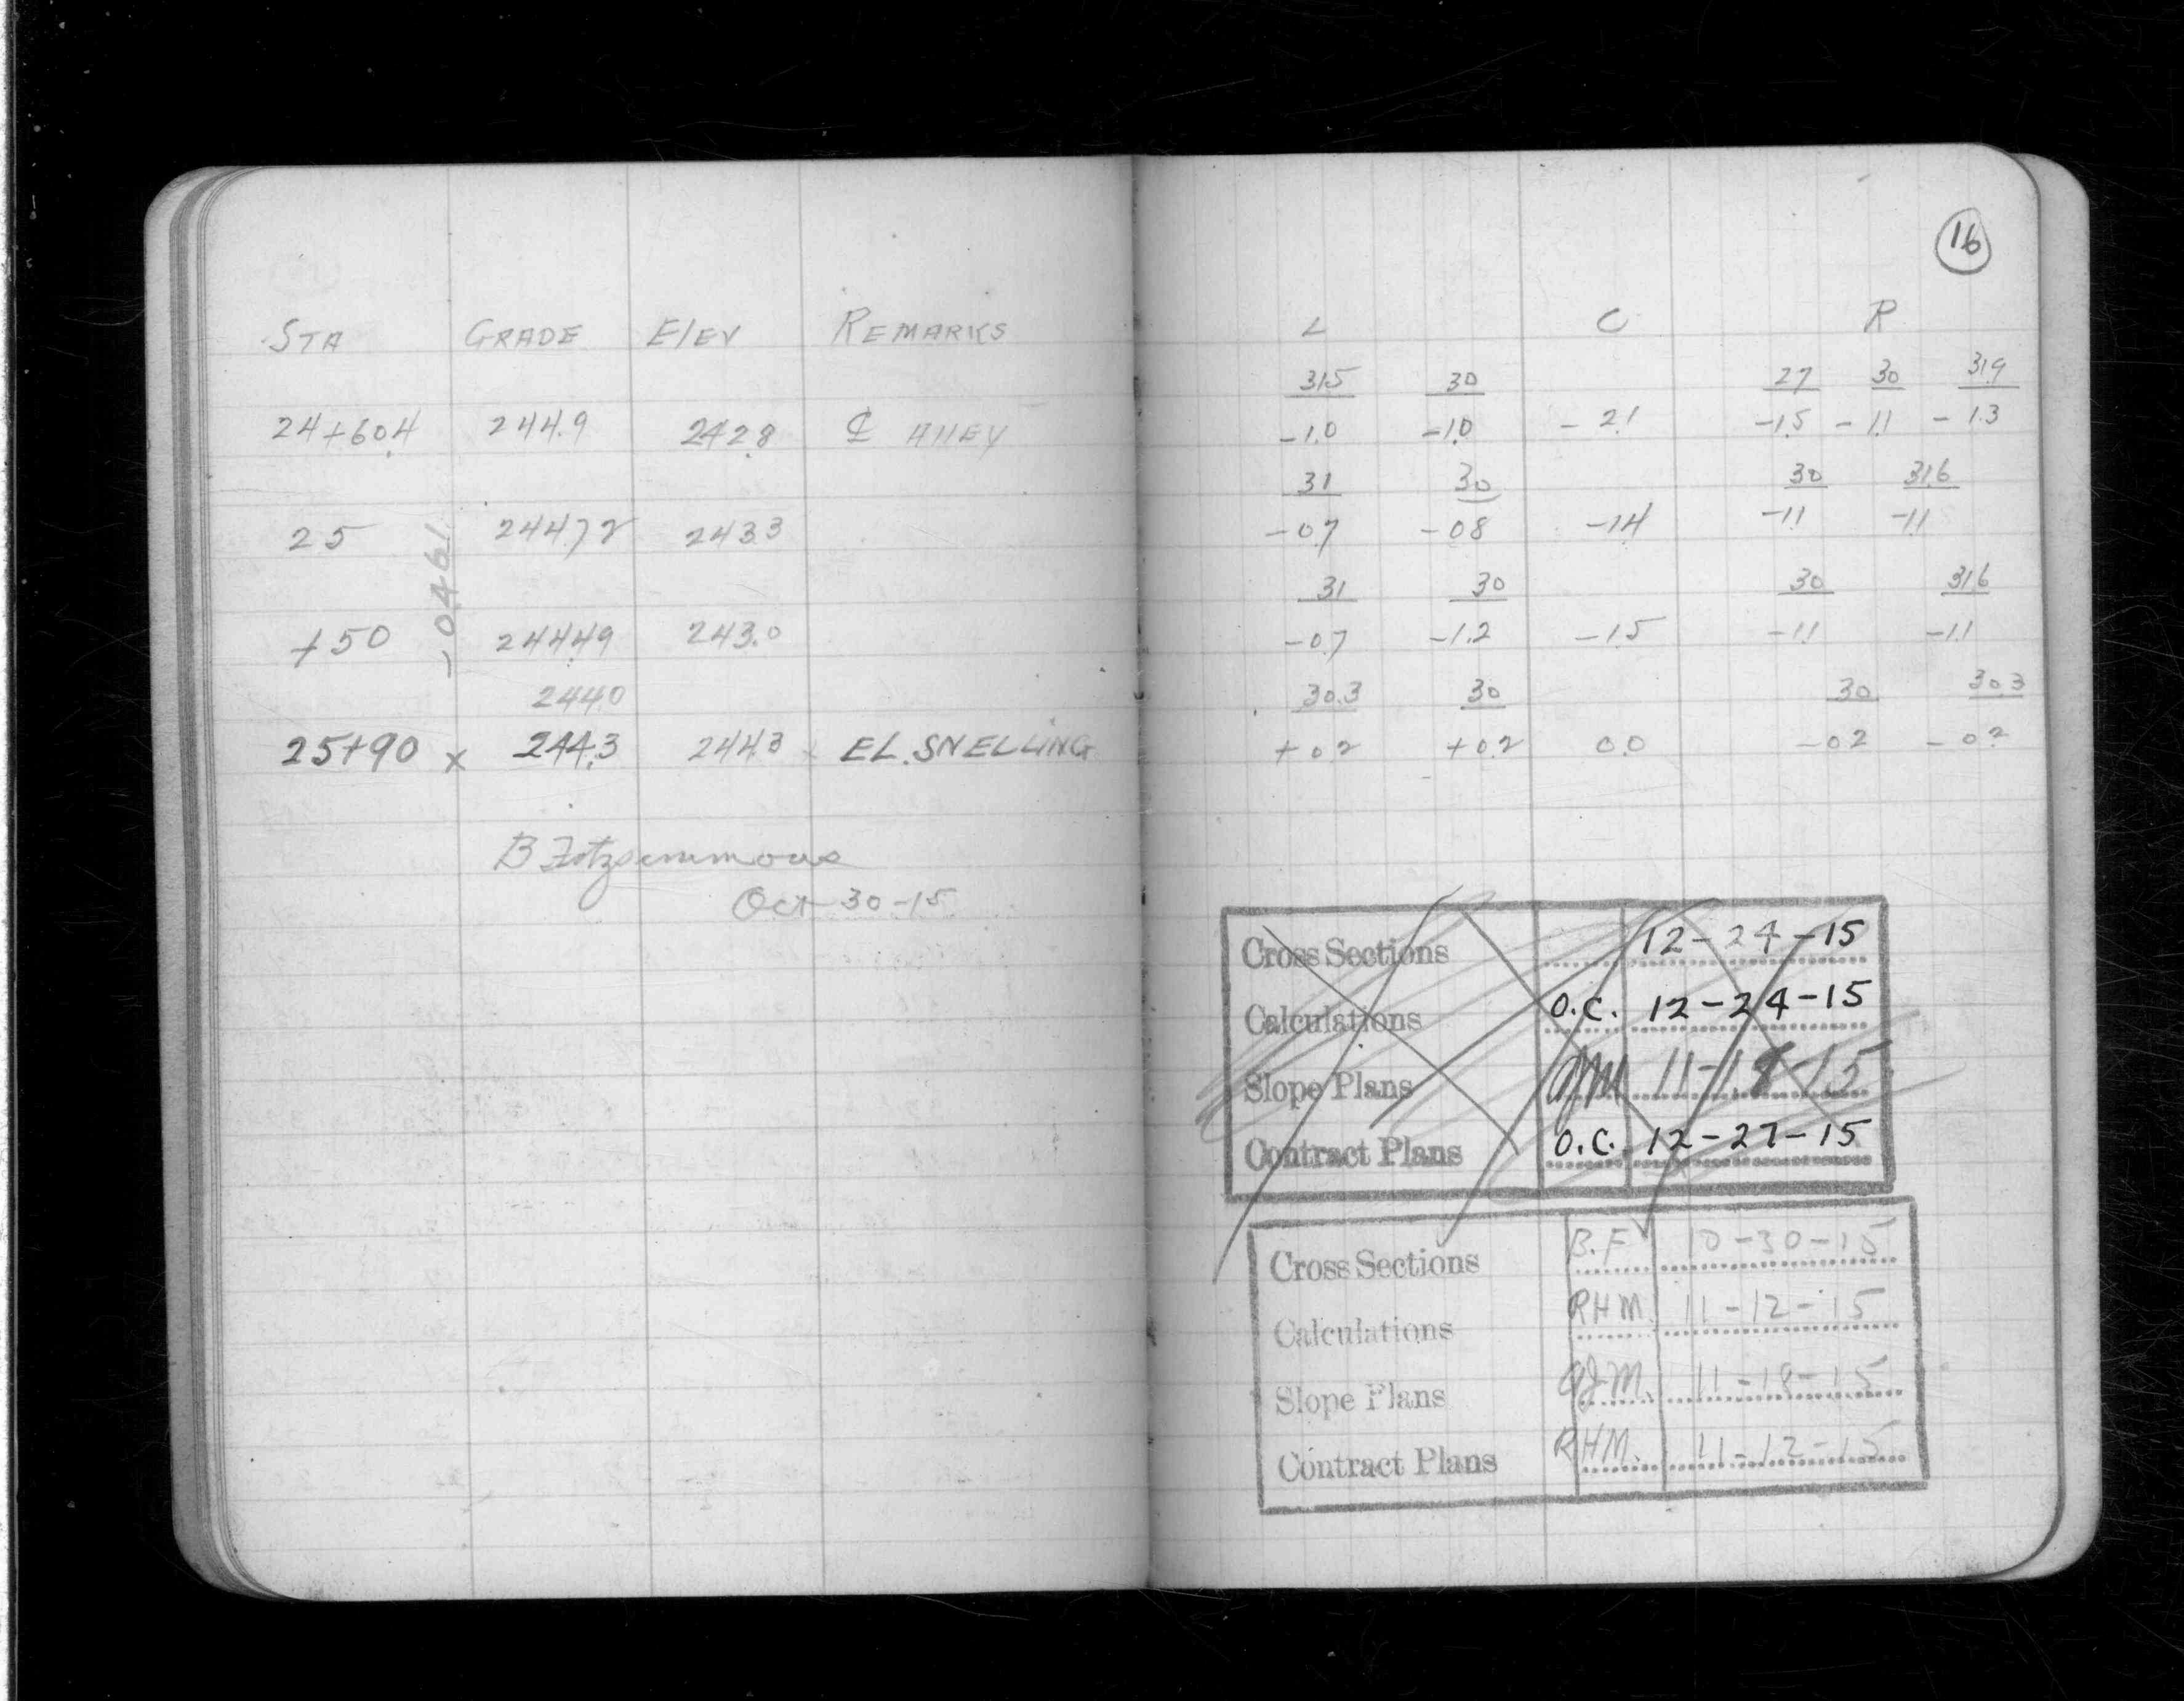 16
STA GRADE Elev REMARKS L C R
31.5 30 27 30 31.9
24+60.4 244.9 242.8 ℄ AllEY -1.0 -1.0 - 2.1 -1.5 - 1.1 - 1.3
31 30 30 31.6
25 244.72 243.3 -0.7 -0.8 -1.4 -1.1 -1.1
-.0461
31 30 30 31.6
+50 244.49 243.0 -0.7 -1.2 -1.5 -1.1 -1.1
244.0 30.3 30 30 30.3
25+90 x 244.3 244.3 x EL. SNELLING +0.2 +0.2 0.0 -0.2 -0.2
B Fitzsimmons
Oct 30-15
Cross Sections 12-24-15
Calculations O.C. 12-24-15
Slope Plans 11-18-15
Contract Plans O.C. 12-27-15
Cross Sections B.F 10-30-15
Calculations RHM. 11-12-15
Slope Plans 11-18-15
Contract Plans RHM. 11-12-15